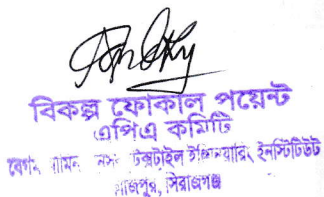 বিকল্প ফোকাল পয়েন্ট
এপিএ কমিটি
বেগম টেক্সটাইল ইঞ্জিনিয়ারিং ইনস্টিটিউট
কাজিপুর, সিরাজগঞ্জ